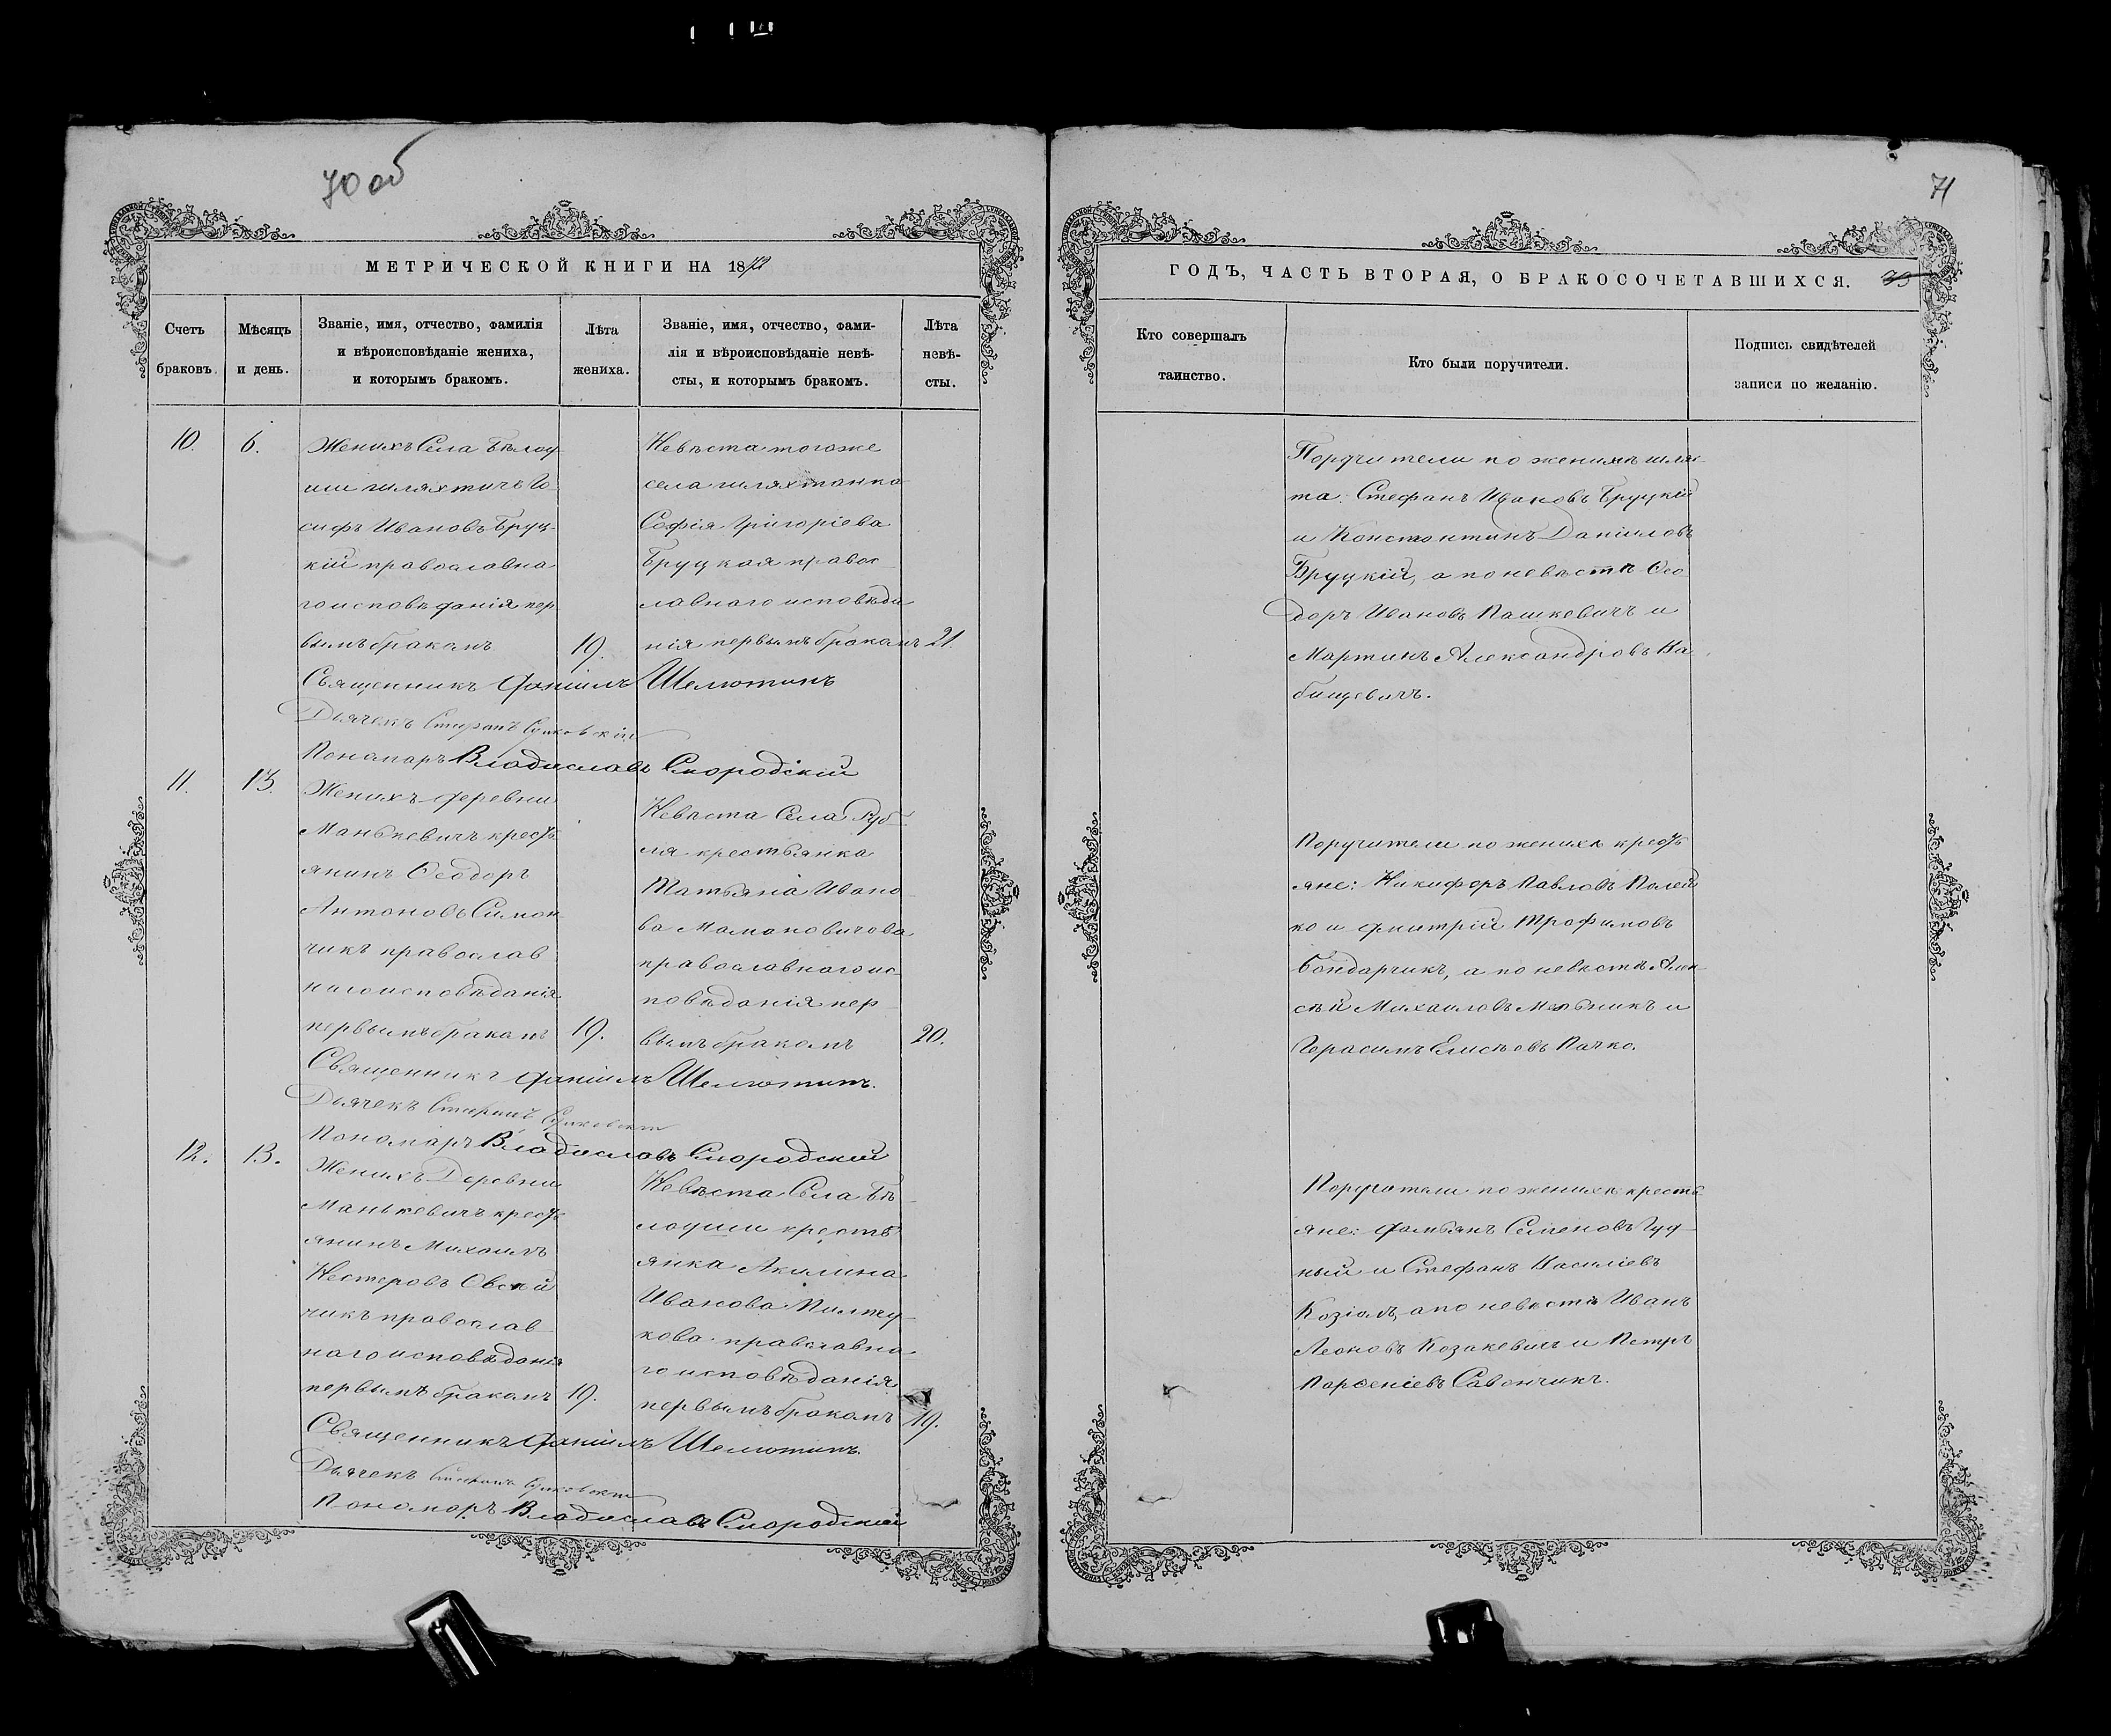 70 об
МЕТРИЧЕСКОЙ КНИГИ НА 1872
Счетъ браковъ.
Мѣсяцъ и день.
Званіе, имя, отчество, фамилія
и вѣроисповѣданіе жениха,
и которымъ бракомъ.
Лѣта жениха.
Званіе, имя, отчество, фами-
лія и вѣроисповѣданіе невѣ-
сты, и которымъ бракомъ.
Лѣта невѣ-
сты.
10.
6.
Женихъ Села Бѣлоу
ши шляхтичъ Іо
сифъ Ивановъ Бруц-
кій православна
го исповѣданія пер
вымъ бракомъ
19.
Невѣста тогоже
села шляхтянка
Софія Григоріева
Бруцкая правос
лавнаго исповѣда
нія первымъ бракомъ
21.
Священникъ Даніилъ Шелютинъ
Дьячекъ Стефанъ
Пономарь Владиславъ Смородскій
11.
13.
Женихъ деревни
Манькевичъ крестъ
янинъ Ѳеодоръ
Антоновъ Симон
чикъ православ
наго исповѣданія
первымъ бракомъ
19.
Невѣста Села Руб-
ля крестьянка
Татьяна Ивано
ва Мамоновичова
православнаго ис
повѣданія пер
вымъ бракомъ
20.
Священникъ Даніилъ Шелютинъ.
Дьячекъ Стефанъ
Пономарь Владиславъ Смородский
12.
13.
Женихъ Деревни
Манькевичъ крестъ
янинъ Михаилъ
Нестеровъ Овсѣй
чикъ православ
наго исповѣданія
первымъ бракомъ
19.
Невѣста Села Бѣ
лоуши крестъ
янка Акилина
Иванова Пилту-
кова православна
го исповѣданія
первымъ бракомъ
19.
Священникъ Даніилъ Шелютинъ.
Дьячекъ Стефанъ
Пономарь Владиславъ Смородский
71
ГОДЪ, ЧАСТЬ ВТОРАЯ, О БРАКОСОЧЕТАВШИХСЯ.
Кто совершалъ
таинство.
Кто были поручители.
Подпись свидѣтелей
записи по желанію.
Поручители по женихѣ шлях
та: Стефанъ Ивановъ Бруцкій
и Константинъ Даніиловъ
Бруцкій, а по невѣстѣ Ѳео
доръ Ивановъ Пашкевичъ и
Мартинъ Александровъ Ва
бищевичъ.
Поручители по женихѣ крестъ
яне: Никифоръ Павловъ Полей
ко и Дмитрій Трофимовъ
Бондарчикъ, а по невѣстѣ Алек
сѣй Михаиловъ Мельникъ и
Герасимъ Елисѣевъ Пачко.
Поручители по женихѣ крестъ
яне: Дамьянъ Семеновъ Гуд
ный и Стефанъ Василіевъ
Козіолъ, а по невѣстѣ Иванъ
Леоновъ Козакевичъ и Петръ
Парѳеніевъ Савончикъ.